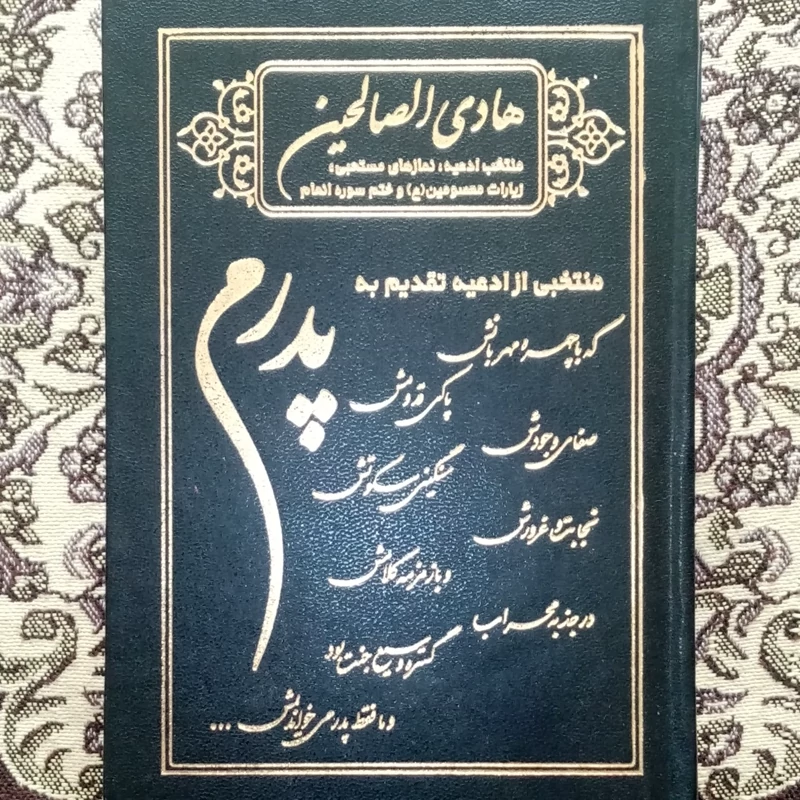 هادی الصالحین
منتخب ادعیه، نمازهای مستحبی،
زیارات معصومین(ع) و ختم سوره انعام
منتخبی از ادعیه تقدیم به
پدرم
که با چهره مهربانش
پاکی قدومش
صفای وجودش
سنگینی سکوتش
نجابت و غرورش
و باز مزمه کلامش
در جذبه محراب
گستره وسیع جنت بود
و ما فقط پدر می خواندیمش ...